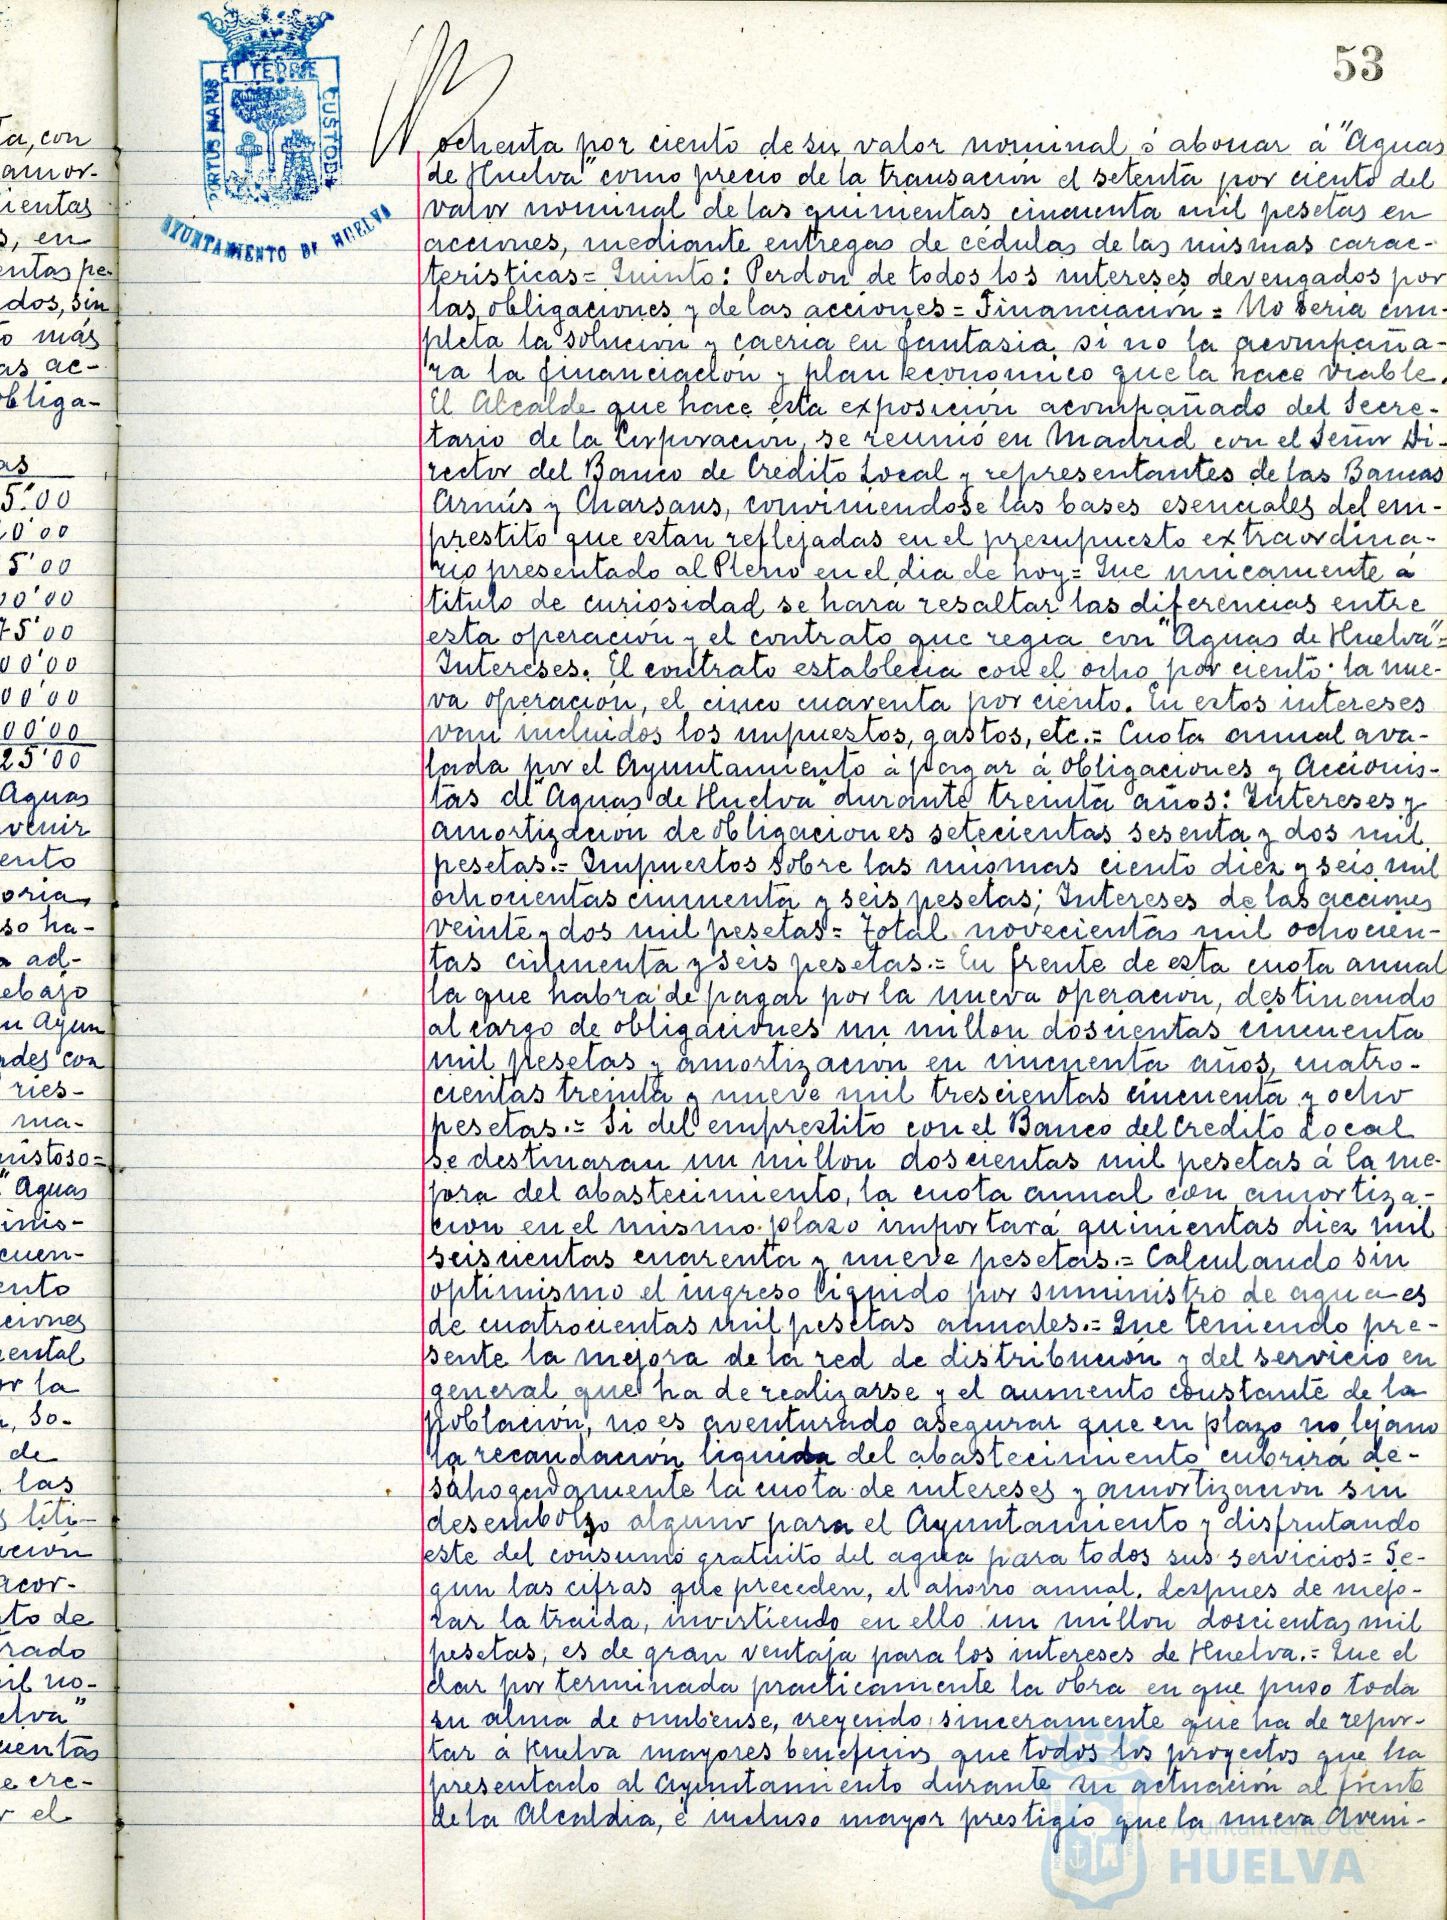 53
ET TERRE
PORTUS MARIS
CUSTODI
AYUNTAMIENTO DE HUELVA
ochenta por ciento de su valor nominal o abonar á "Aguas
de Huelva" como precio de la transación el setenta por ciento del
valor nominal de las quinientas cincuenta mil pesetas en
acciones, mediante entregas de cédulas de las mismas carac-
teristicas= Quinto: Perdon de todos los intereses devengados por
las obligaciones y de las acciones= Financiación= No seria com-
pleta la solución y caeria en fantasia si no la acompaña-
ra la financiación y plan económico que la hace viable.
El Alcalde que hace esta exposición acompañado del Secre-
tario de la Corporación, se reunió en Madrid con el Señor Di-
rector del Banco de Credito Local y representantes de las Bancas
Arnús y Charsaus, conviniendose las bases esenciales del em-
prestito que estan reflejadas en el presupuesto extraordina-
rio presentado al Pleno en el dia de hoy= Que unicamente a
titulo de curiosidad se hara resaltar las diferencias entre
esta operación y el contrato que regia con "Aguas de Huelva"=
Intereses. El contrato establecia con el ocho por ciento; la nue-
va operación, el cinco cuarenta por ciento. En estos intereses
van incluidos los impuestos, gastos, etc.= Cuota anual ava-
lada por el Ayuntamiento á pagar á obligaciones y Accionis-
tas de "Aguas de Huelva" durante treinta años: Intereses y
amortización de obligaciones setecientas sesenta y dos mil
pesetas.= Impuestos sobre las mismas ciento diez y seis mil
ochocientas cincuenta y seis pesetas; Intereses de las acciones
veinte y dos mil pesetas= Total novecientas mil ochocien-
tas cincuenta y seis pesetas.= En frente de esta cuota anual
la que habra de pagar por la nueva operacion, destinando
al cargo de obligaciones un millon doscientas cincuenta
mil pesetas y amortización en cincuenta años, cuatro-
cientas treinta y nueve mil trescientas cincuenta y ocho
pesetas.= Si del emprestito con el Banco del Credito Local
se destinaran un millon doscientas mil pesetas á la me-
jora del abastecimiento, la cuota anual con amortiza-
cion en el mismo plazo importará quinientas diez mil
seiscientas cuarenta y nueve pesetas.= Calculando sin
optimismo el ingreso liquido por suministro de agua es
de cuatrocientas mil pesetas anuales.= Que teniendo pre-
sente la mejora de la red de distribución y del servicio en
general que ha de realizarse y el aumento constante de la
población, no es aventurado asegurar que en plazo no lejano
la recaudación liquida del abastecimiento cubrirá de-
sahogadamente la cuota de intereses y amortizacion sin
desembolso alguno para el Ayuntamiento y disfrutando
este del consumo gratuito del agua para todos sus servicios= Se-
gun las cifras que preceden, el ahorro anual, despues de mejo-
rar la traida, invirtiendo en ello un millon doscientas mil
pesetas, es de gran ventaja para los intereses de Huelva.= Que el
dar por terminada practicamente la obra en que puso toda
su alma de onubense, creyendo sinceramente que ha de repor-
tar á Huelva mayores beneficios que todos los proyectos que ha
presentado al Ayuntamiento durante su actuación al frente
de la Alcaldia, é incluso mayor prestigio que la nueva Aveni-
Ayuntamiento de
HUELVA